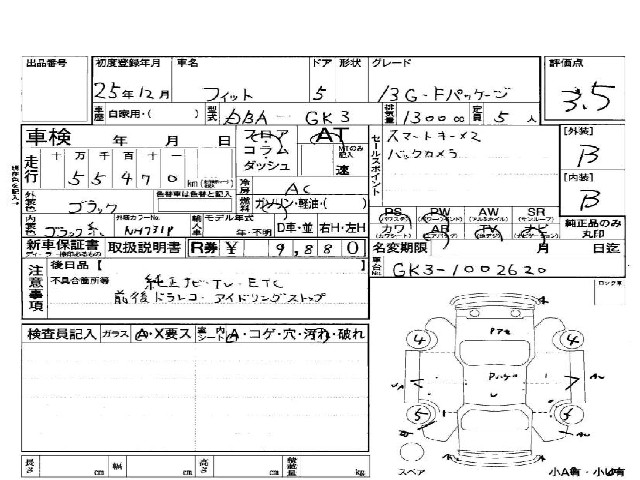 出品番号 初度登録年月 車名 ドア 形状 グレード 評価点
25年12月 フィット 5 13G・Fパッケージ 3.5
車歴 自家用・( ) 型式 DBA-GK3 排気量 1300 cc 定員 5 人
車検 年 月 日 フロア・コラム・ダッシュ AT MTのみ記入 速
走行 十 万 千 百 十 一
5 5 4 7 0 km
セールスポイント
スマートキー×2
バックカメラ
[外装] B
[内装] B
冷房 AC
外装色 ブラック 色替車は色替と記入 燃料 ガソリン・軽油・( )
PS PW AW SR
(パワステ) (パワーウィンド) (アルミホイル) (サンルーフ)
カワ AB TV ナビ
純正品のみ丸印
内装色 ブラック系 外装カラーNo. NH731P 輸入車 モデル年式 年・不明 D車・並 右H・左H
新車保証書 取扱説明書 R券 ¥ 9,880
名変期限 月 日迄
車台No. GK3-1002620
注意事項
後日品 【 】
不具合箇所等
純正ナビ・TV・ETC
前後ドラレコ・アイドリングストップ
ロック車
検査員記入 ガラス A・X要ス 室内シート A・コゲ・穴・汚れ・破れ
4 4
5
スペア
長さ cm 幅 cm 高さ cm 積載量 kg
小A有・小U有